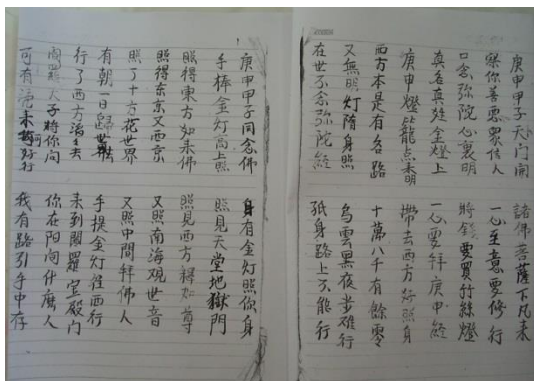 庚申甲子天门開 諸佛菩薩下凡来
察你善悪衆信人 一心至意要修行
口念弥陀心裏明 時錢要買竹絲燈
真名真姓金燈上 一心要拜庚申經
庚申燈籠点未明 帶去西方好照身
西方本是有名路 十萬八千有餘零
又無明灯隨身照 烏雲黑夜步难行
在世不念弥陀經 孤身路上不能行
庚申甲子同念佛 身有金灯照你身
手捧金灯高上照 照見天堂地獄門
照得東方如来佛 照見西方釋加尊
照得东京又西京 又照南海观世音
照了十方花世界 又照中間拜佛人
有朝一日歸 手提金灯徃西行
行了西方去 未到閻羅宝殿门
閻羅天子将你问 你在阳间什庅人
可有凭 好行 我有路引手中存